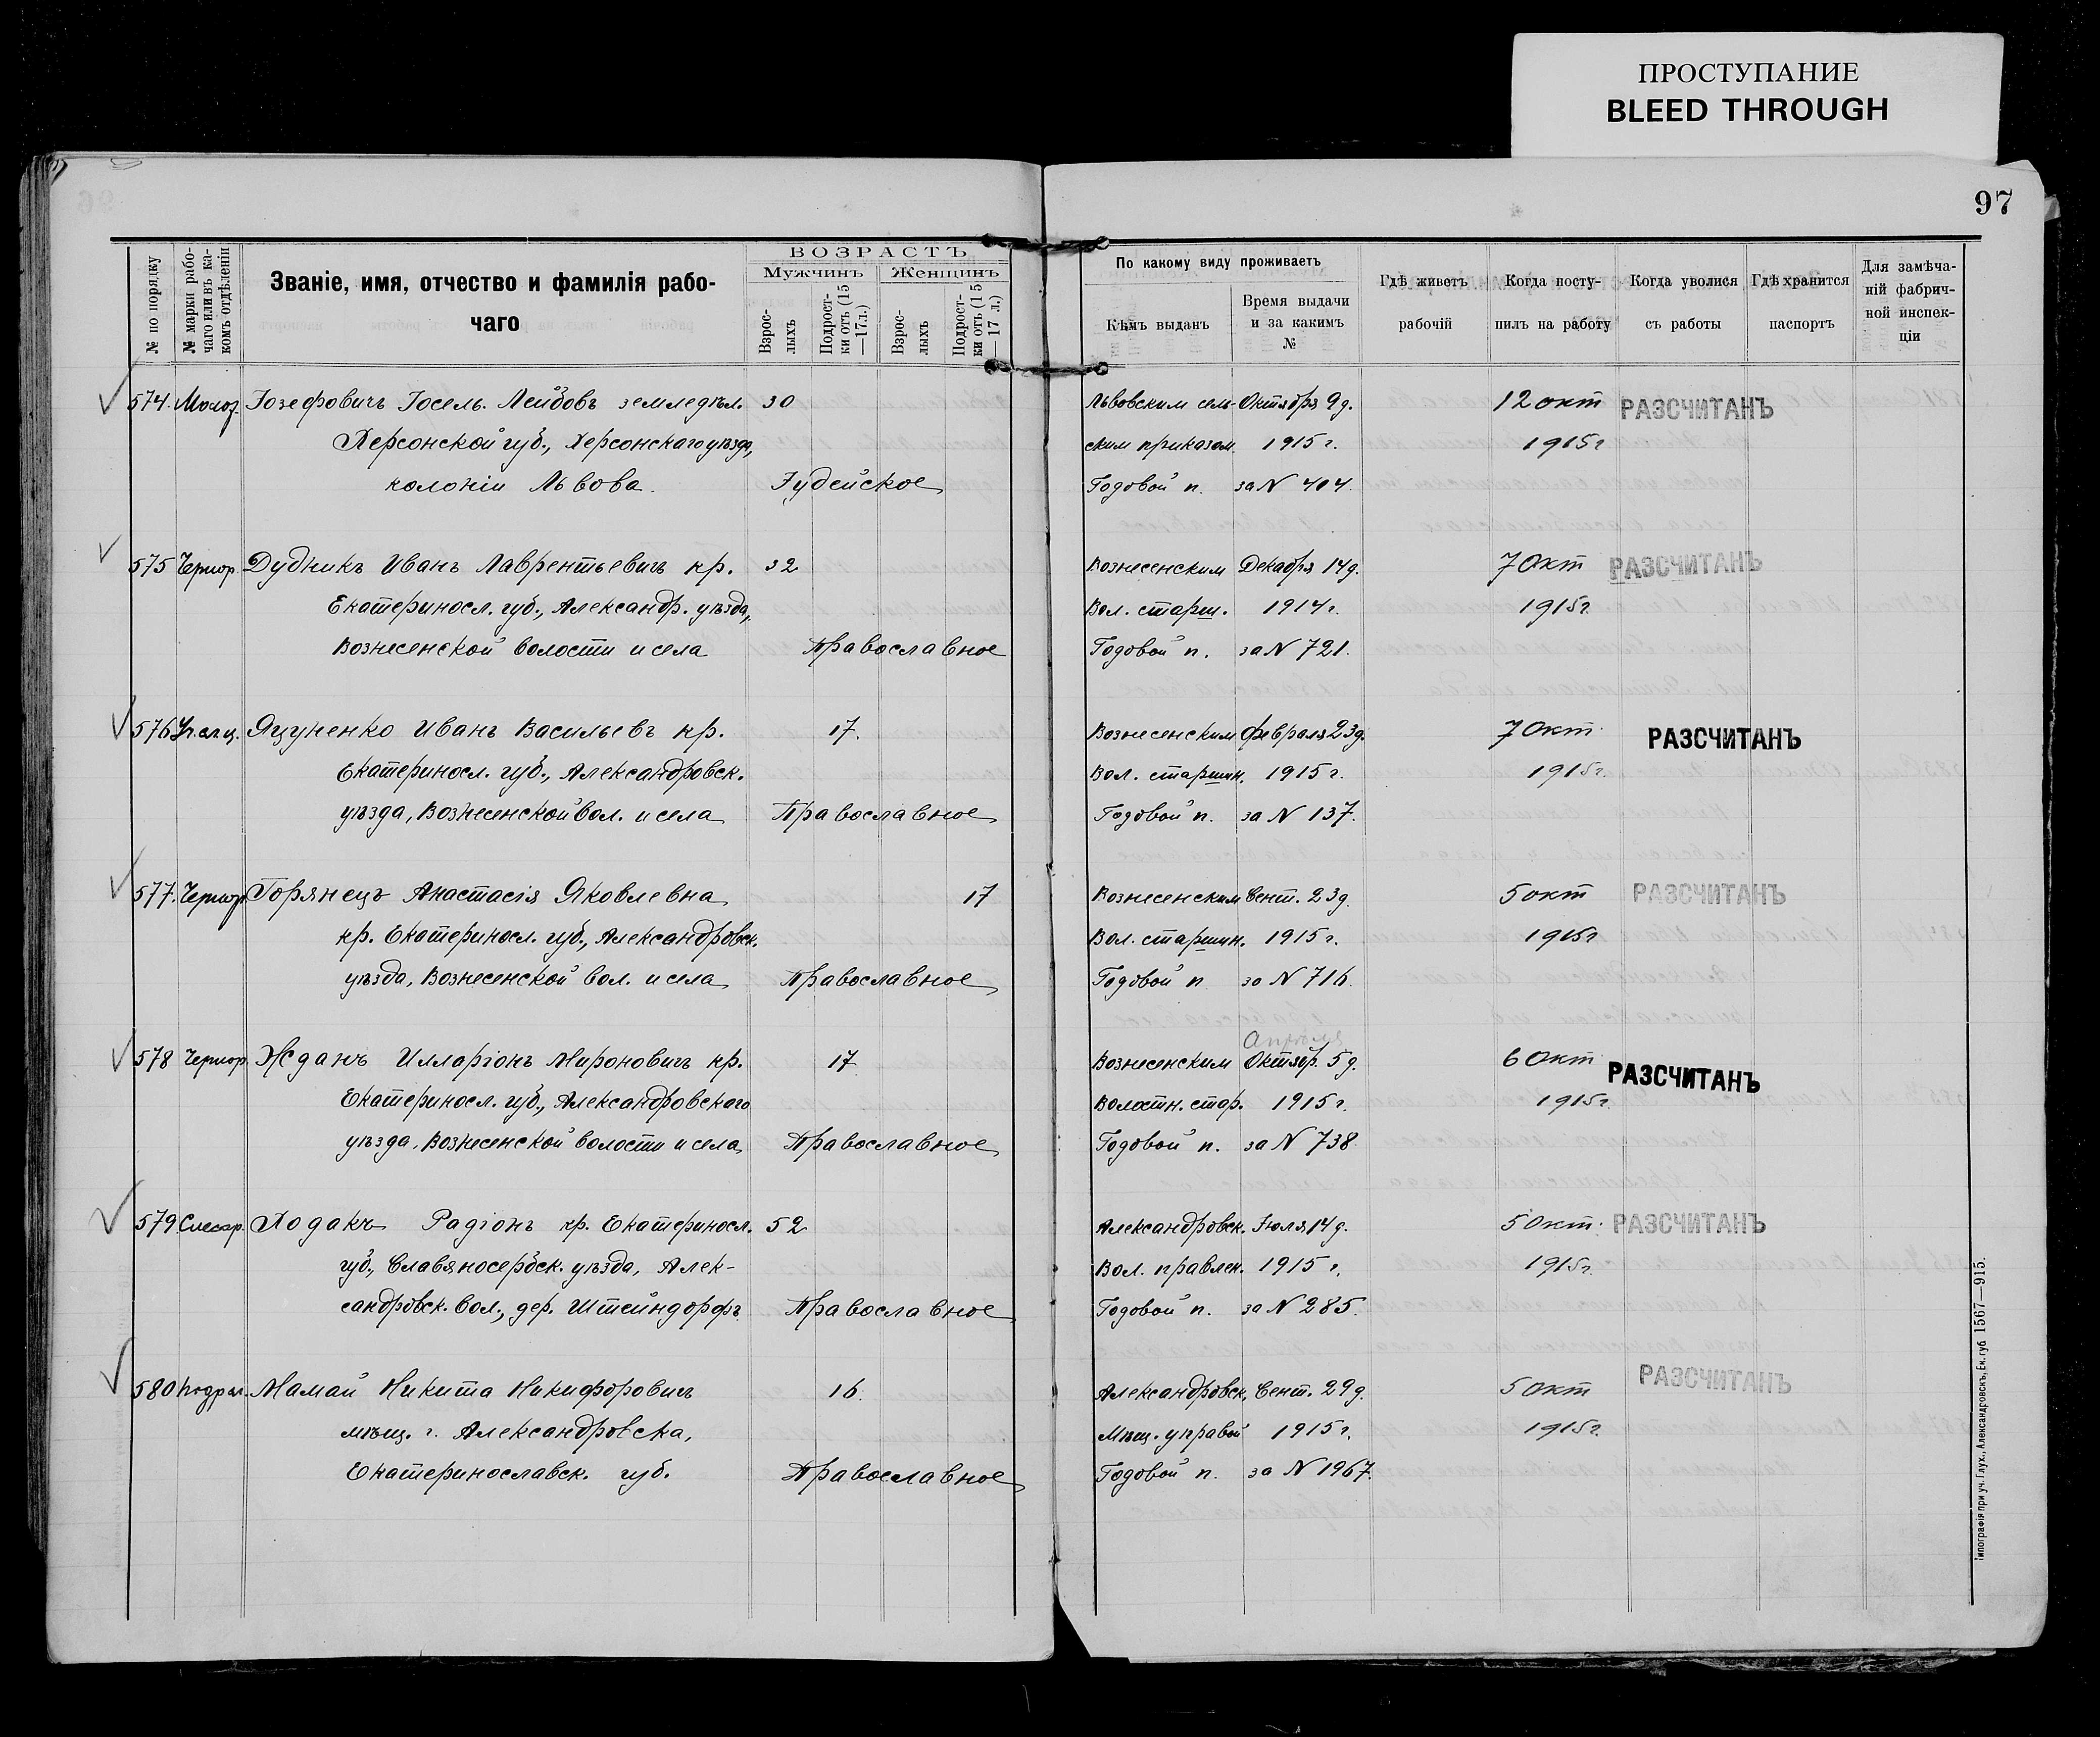 ПРОСТУПАНИЕ
BLEED THROUGH
97
№ по порядку
№ марки рабо-
чаго или въ ка-
комъ отдѣленіи
Званіе, имя, отчество и фамилія рабо-
чаго
ВОЗРАСТЪ
Мужчинъ
Женщинъ
Взрос-
лыхъ
Подрост-
ки отъ (15
—17 л.)
Взрос-
лыхъ
Подрост-
ки отъ (15
— 17 л.)
По какому виду проживаетъ
Кѣмъ выданъ
Время выдачи
и за какимъ
№
Гдѣ живетъ
рабочій
Когда посту-
пилъ на работу
Когда уволися
съ работы
Гдѣ хранится
паспортъ
Для замѣча-
ній фабрич-
ной инспек-
ціи
574. Молот. Іозефовичъ Іосель. Лейбовъ земледѣл. 30 Львовским сель- Октября 9 д. 12 окт РАЗСЧИТАНЪ
Херсонской губ., Херсонскаго уѣзда, ским приказом. 1915 г. 1915 г
колоніи Львова. Іудейское Годовой п. за N 404.
575 Чернор. Дудникъ Иванъ Лаврентьевичъ кр. 32 Вознесенским Декабря 14 д. 7 Окт РАЗСЧИТАНЪ
Екатериносл. губ., Александр. уѣзда, Вол. старш. 1914 г. 1915 г.
Вознесенской волости и села Православное Годовой п. за N 721.
576 Яцуненко Иванъ Васильевъ кр. 17. Вознесенским февраля 23 д. 7 Окт. РАЗСЧИТАНЪ
Екатериносл. губ., Александровск. Вол. старшин. 1915 г. 1915 г.
уѣзда, Вознесенской вол. и села Православное Годовой п. за N 137.
577. Чернор. Горянецъ Анастасія Яковлевна 17 Вознесенским Сент. 23 д. 5 окт РАЗСЧИТАНЪ
кр. Екатериносл. губ., Александровск. Вол. старшин. 1915 г. 1915 г
уѣзда, Вознесенской вол. и села Православное Годовой п за N 716.
Апрѣля
578 Чернор. Жданъ Илларіонъ Мироновичъ кр. 17 Вознесенским Октябр. 5 д. 6 Окт РАЗСЧИТАНЪ
Екатериносл. губ., Александровскаго Волостн. стар. 1915 г. 1915 г.
уѣзда, Вознесенской волости и села Православное Годовой п. за N 738
579 Слесар. Ходакъ Радіонъ кр. Екатериносл. 52 Александровск. Іюля 14 д. 5 Окт. РАЗСЧИТАНЪ
губ., Славяносербск. уѣзда, Алек- Вол. правлен. 1915 г. 1915 г.
сандровск. вол., дер. Штейндорфъ Православное Годовой п. за N 285.
580 Мамай Никита Никифоровичъ 16. Александровск. Сент. 29 д. 5 Окт РАЗСЧИТАНЪ
мѣщ. г. Александровска, Мѣщ. управой 1915 г. 1915 г.
Екатеринославск. губ. Православное Годовой п. за N 1967.
Типографія при уч. Глух., Александровскъ, Ек. губ. 1567—915.